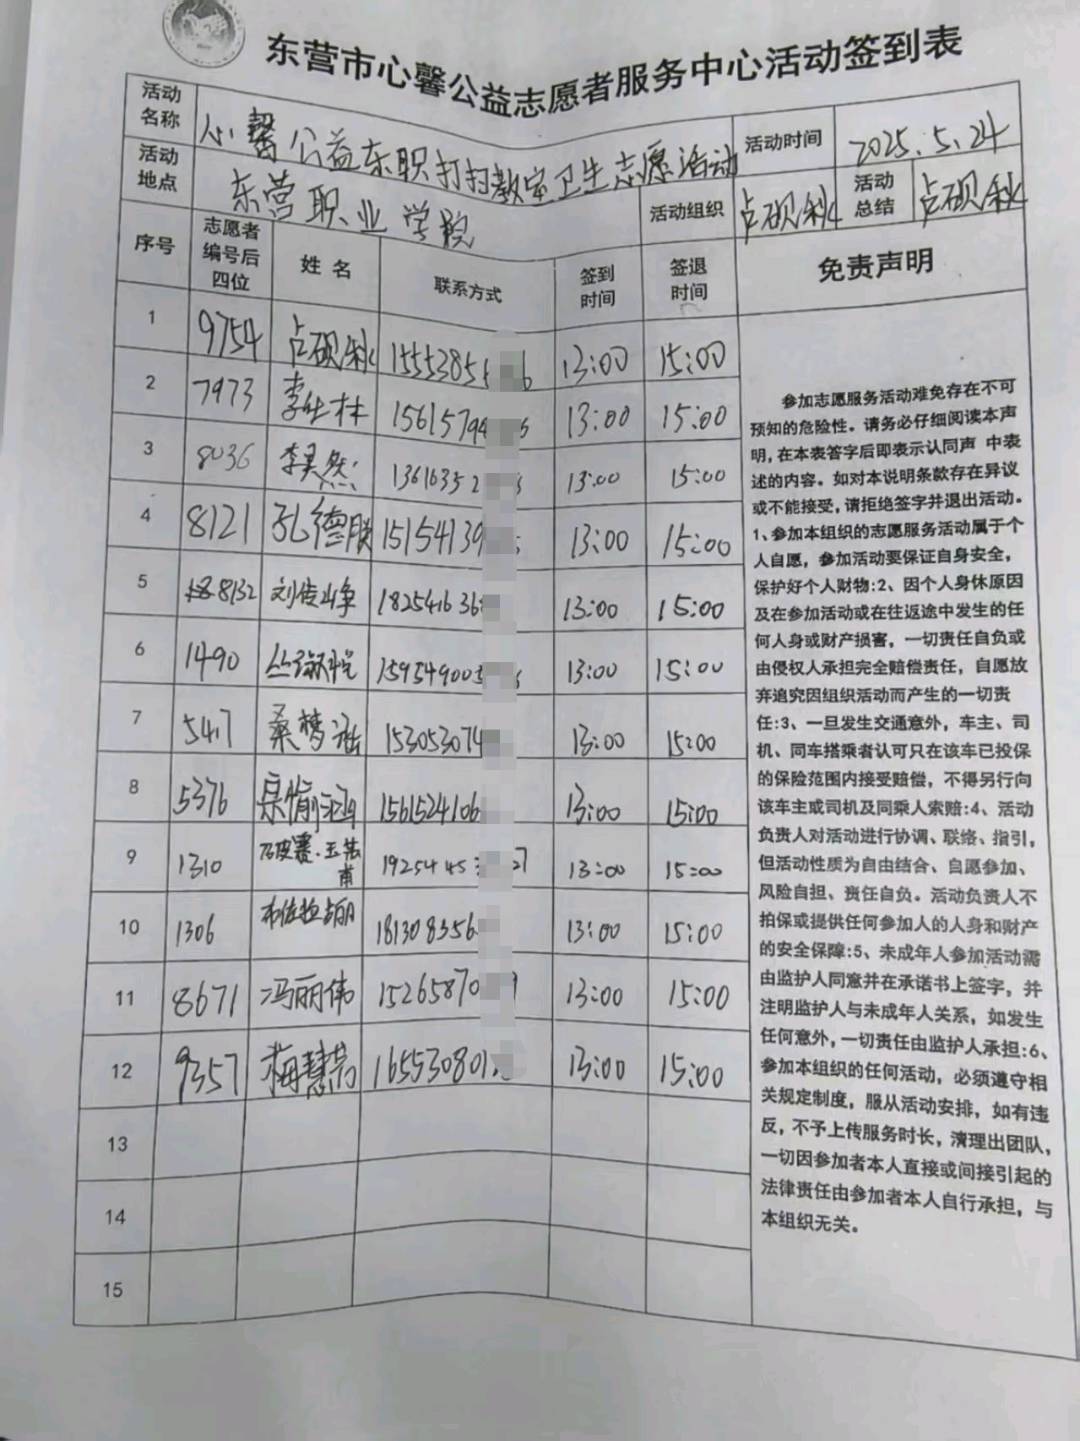 东营市心馨公益志愿者服务中心活动签到表
活动名称 心馨公益东职打扫教室卫生志愿活动 活动时间 2025.5.24
活动地点 东营职业学院 活动组织 占砚秋 活动总结 占砚秋
序号 志愿者编号后四位 姓名 联系方式 签到时间 签退时间 免责声明
1 9754 占砚秋 1555385 6 13:00 15:00
2 7973 李仕林 15615794 13:00 15:00
3 8036 李昊然 13616352 13:00 15:00
4 8121 孔德 15154139 13:00 15:00
5 8132 刘俊峥 182541636 13:00 15:00
6 1490 159549005 13:00 15:00
7 5417 桑梦涵 153053074 13:00 15:00
8 5376 1561524106 13:00 15:00
9 1310 1925445 7 13:00 15:00
10 1306 181308356 13:00 15:00
11 8671 冯丽伟 15265870 9 13:00 15:00
12 9357 梅慧 165530801 13:00 15:00
13
14
15
参加志愿服务活动难免存在不可
预知的危险性。请务必仔细阅读本声
明,在本表签字后即表示认同声 中表
述的内容。如对本说明条款存在异议
或不能接受,请拒绝签字并退出活动。
1、参加本组织的志愿服务活动属于个
人自愿,参加活动要保证自身安全,
保护好个人财物:2、因个人身休原因
及在参加活动或在往返途中发生的任
何人身或财产损害,一切责任自负或
由侵权人承担完全赔偿责任,自愿放
弃追究因组织活动而产生的一切责
任:3、一旦发生交通意外,车主、司
机、同车搭乘者认可只在该车已投保
的保险范围内接受赔偿,不得另行向
该车主或司机及同乘人索赔:4、活动
负责人对活动进行协调、联络、指引,
但活动性质为自由结合、自愿参加、
风险自担、责任自负。活动负责人不
担保或提供任何参加人的人身和财产
的安全保障:5、未成年人参加活动需
由监护人同意并在承诺书上签字,并
注明监护人与未成年人关系,如发生
任何意外,一切责任由监护人承担:6、
参加本组织的任何活动,必须遵守相
关规定制度,服从活动安排,如有违
反,不予上传服务时长,清理出团队,
一切因参加者本人直接或间接引起的
法律责任由参加者本人自行承担,与
本组织无关。